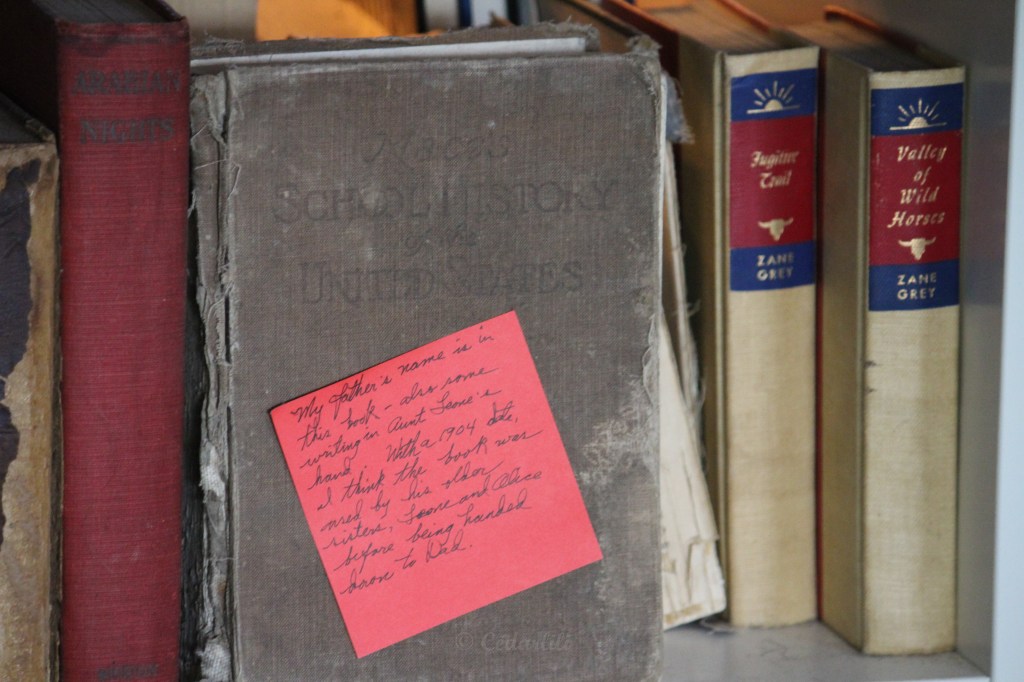 ARABIAN
NIGHTS
Mace's
SCHOOL HISTORY
of the
UNITED STATES
My father's name is in
this book - also some
writing in Aunt Leone's
hand. With a 1904 date,
I think the book was
used by his older
sisters, Leone and Alice
before being handed
down to Dad.
© Cedarlili
Fugitive
Trail
ZANE
GREY
Valley
of
Wild
Horses
ZANE
GREY